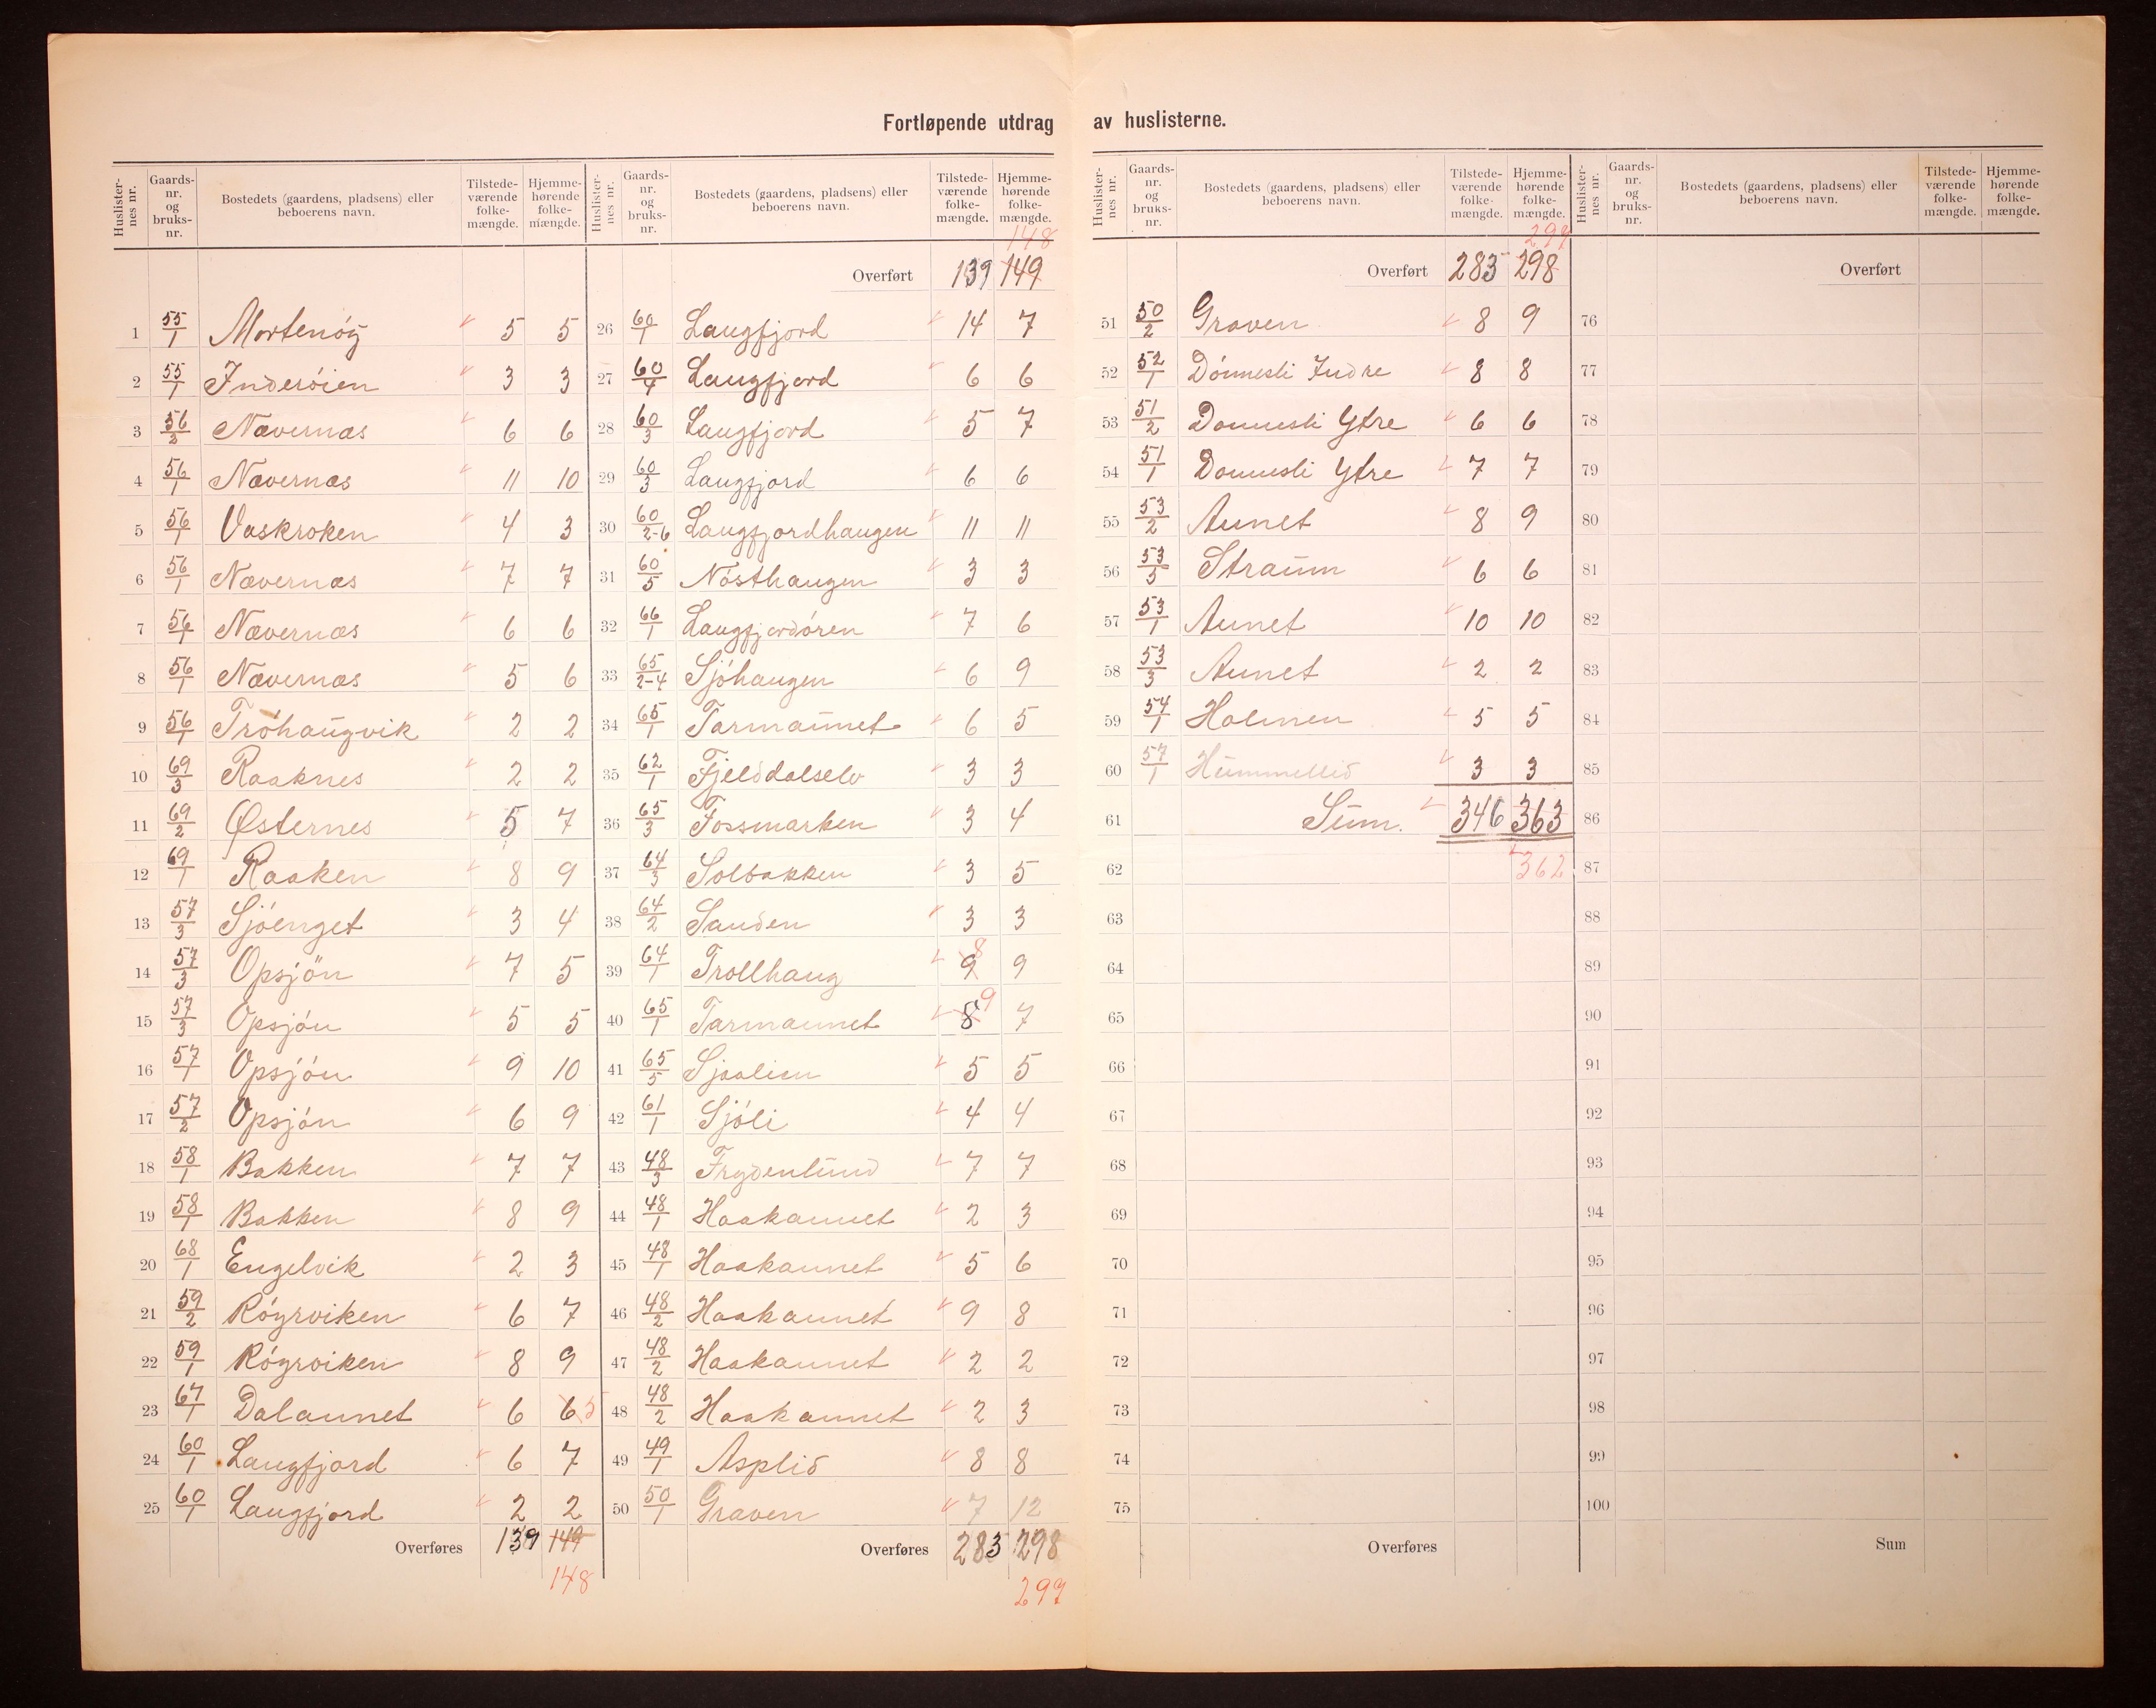 Fortløpende utdrag av huslisterne.
Huslisternes nr. | Gaards-nr. og bruks-nr. | Bostedets (gaardens, pladsens) eller beboerens navn. | Tilstedeværende folkemængde. | Hjemmehørende folkemængde.
1 55/1 Mortenöy 5 5
2 55/1 Inderöien 3 3
3 56/2 Nævernæs 6 6
4 56/1 Nævernæs 11 10
5 56/1 Vaskroken 4 3
6 56/1 Nævernæs 7 7
7 56/1 Nævernæs 6 6
8 56/1 Nævernæs 5 6
9 56/1 Tröhaugvik 2 2
10 69/3 Raaknes 2 2
11 69/2 Østernes 5 7
12 69/1 Raaken 8 9
13 57/3 Sjöenget 3 4
14 57/3 Opsjön 7 5
15 57/3 Opsjön 5 5
16 57/1 Opsjön 9 10
17 57/2 Opsjön 6 9
18 58/1 Bakken 7 7
19 58/1 Bakken 8 9
20 68/1 Engelvik 2 3
21 59/2 Röyrviken 6 7
22 59/1 Röyrviken 8 9
23 67/1 Dalaunet 6 6 5
24 60/1 Langfjord 6 7
25 60/1 Langfjord 2 2
Overføres 139 149
148
Huslisternes nr. | Gaards-nr. og bruks-nr. | Bostedets (gaardens, pladsens) eller beboerens navn. | Tilstedeværende folkemængde. | Hjemmehørende folkemængde.
148
Overført 139 149
26 60/1 Langfjord 14 7
27 60/4 Langfjord 6 6
28 60/3 Langfjord 5 7
29 60/3 Langfjord 6 6
30 60/2-6 Langfjordhaugen 11 11
31 60/5 Nösthaugen 3 3
32 66/1 Langfjordören 7 6
33 65/2-4 Sjöhaugen 6 9
34 65/1 Tarmaunet 6 5
35 62/1 Fjelddalselv 3 3
36 65/3 Fossmarken 3 4
37 64/3 Solbakken 3 5
38 64/2 Sanden 3 3
39 64/1 Trollhaug 9 8 9
40 65/1 Tarmaunet 8 9 7
41 65/5 Sjaalien 5 5
42 61/1 Sjöli 4 4
43 48/3 Frydenlund 7 7
44 48/1 Haakaunet 2 3
45 48/1 Haakaunet 5 6
46 48/2 Haakaunet 9 8
47 48/2 Haakaunet 2 2
48 48/2 Haakaunet 2 3
49 49/1 Asplid 8 8
50 50/1 Graven 7 12
Overføres 283 298
297
Huslisternes nr. | Gaards-nr. og bruks-nr. | Bostedets (gaardens, pladsens) eller beboerens navn. | Tilstedeværende folkemængde. | Hjemmehørende folkemængde.
297
Overført 283 298
51 50/2 Graven 8 9
52 52/1 Dönnesli Indre 8 8
53 51/2 Donnesli Ytre 6 6
54 51/1 Donnesli Ytre 7 7
55 53/2 Aunet 8 9
56 53/5 Straum 6 6
57 53/1 Aunet 10 10
58 53/3 Aunet 2 2
59 54/1 Holmen 5 5
60 57/1 Hummellid 3 3
61 Sum. 346 363
62 362
63
64
65
66
67
68
69
70
71
72
73
74
75
Overføres
Huslisternes nr. | Gaards-nr. og bruks-nr. | Bostedets (gaardens, pladsens) eller beboerens navn. | Tilstedeværende folkemængde. | Hjemmehørende folkemængde.
Overført
76
77
78
79
80
81
82
83
84
85
86
87
88
89
90
91
92
93
94
95
96
97
98
99
100
Sum